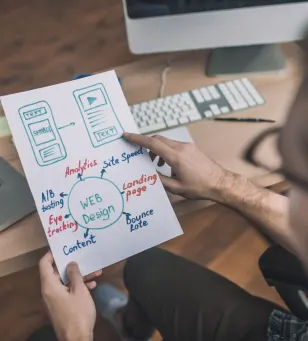 TEXT
TEXT
Analytics
Site Speed
A/B
testing
Landing
page
Eye
tracking
WEB
Design
Bounce
Rate
Content